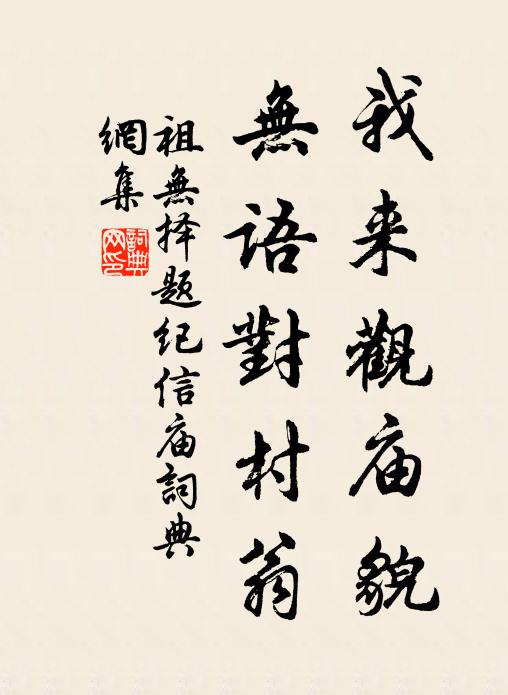 我来觀庙貌
無語對村翁
祖無择题纪信庙詞典
網集
詞典
网印